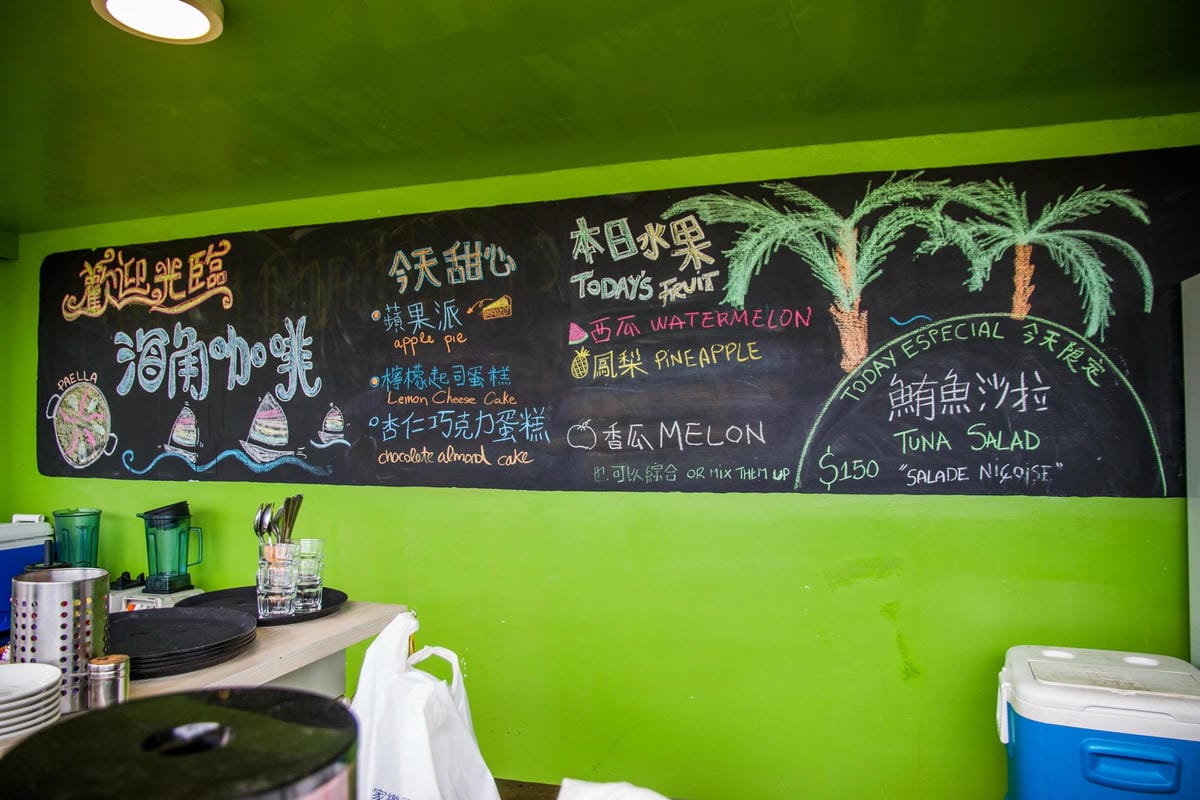 歡迎光臨
海角咖啡
PAELLA
今天甜心
蘋果派
apple pie
檸檬起司蛋糕
Lemon Cheese Cake
杏仁巧克力蛋糕
chocolate almond cake
本日水果
TODAY'S FRUIT
西瓜 WATERMELON
鳳梨 PINEAPPLE
香瓜 MELON
也可以綜合 OR MIX THEM UP
TODAY ESPECIAL 今天限定
鮪魚沙拉
TUNA SALAD
$150 "SALADE NIÇOISE"